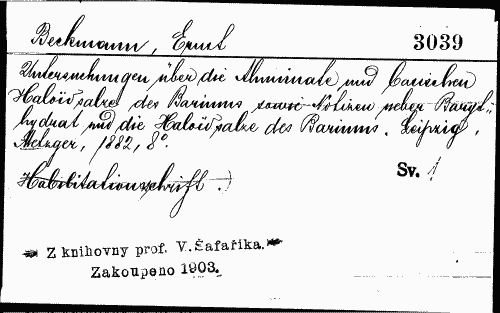 Beckmann, Ernst 3039
Untersuchungen über die Aluminate, und basischen
Haloïdsalze des Bariums sowie Notizen ueber Baryt-
hydrat und die Haloïdsalze des Bariums. Leipzig,
Metzger, 1882, 8°.
Habilitationsschrift.)
Sv. 1
Z knihovny prof. V. Šafaříka.
Zakoupeno 1903.